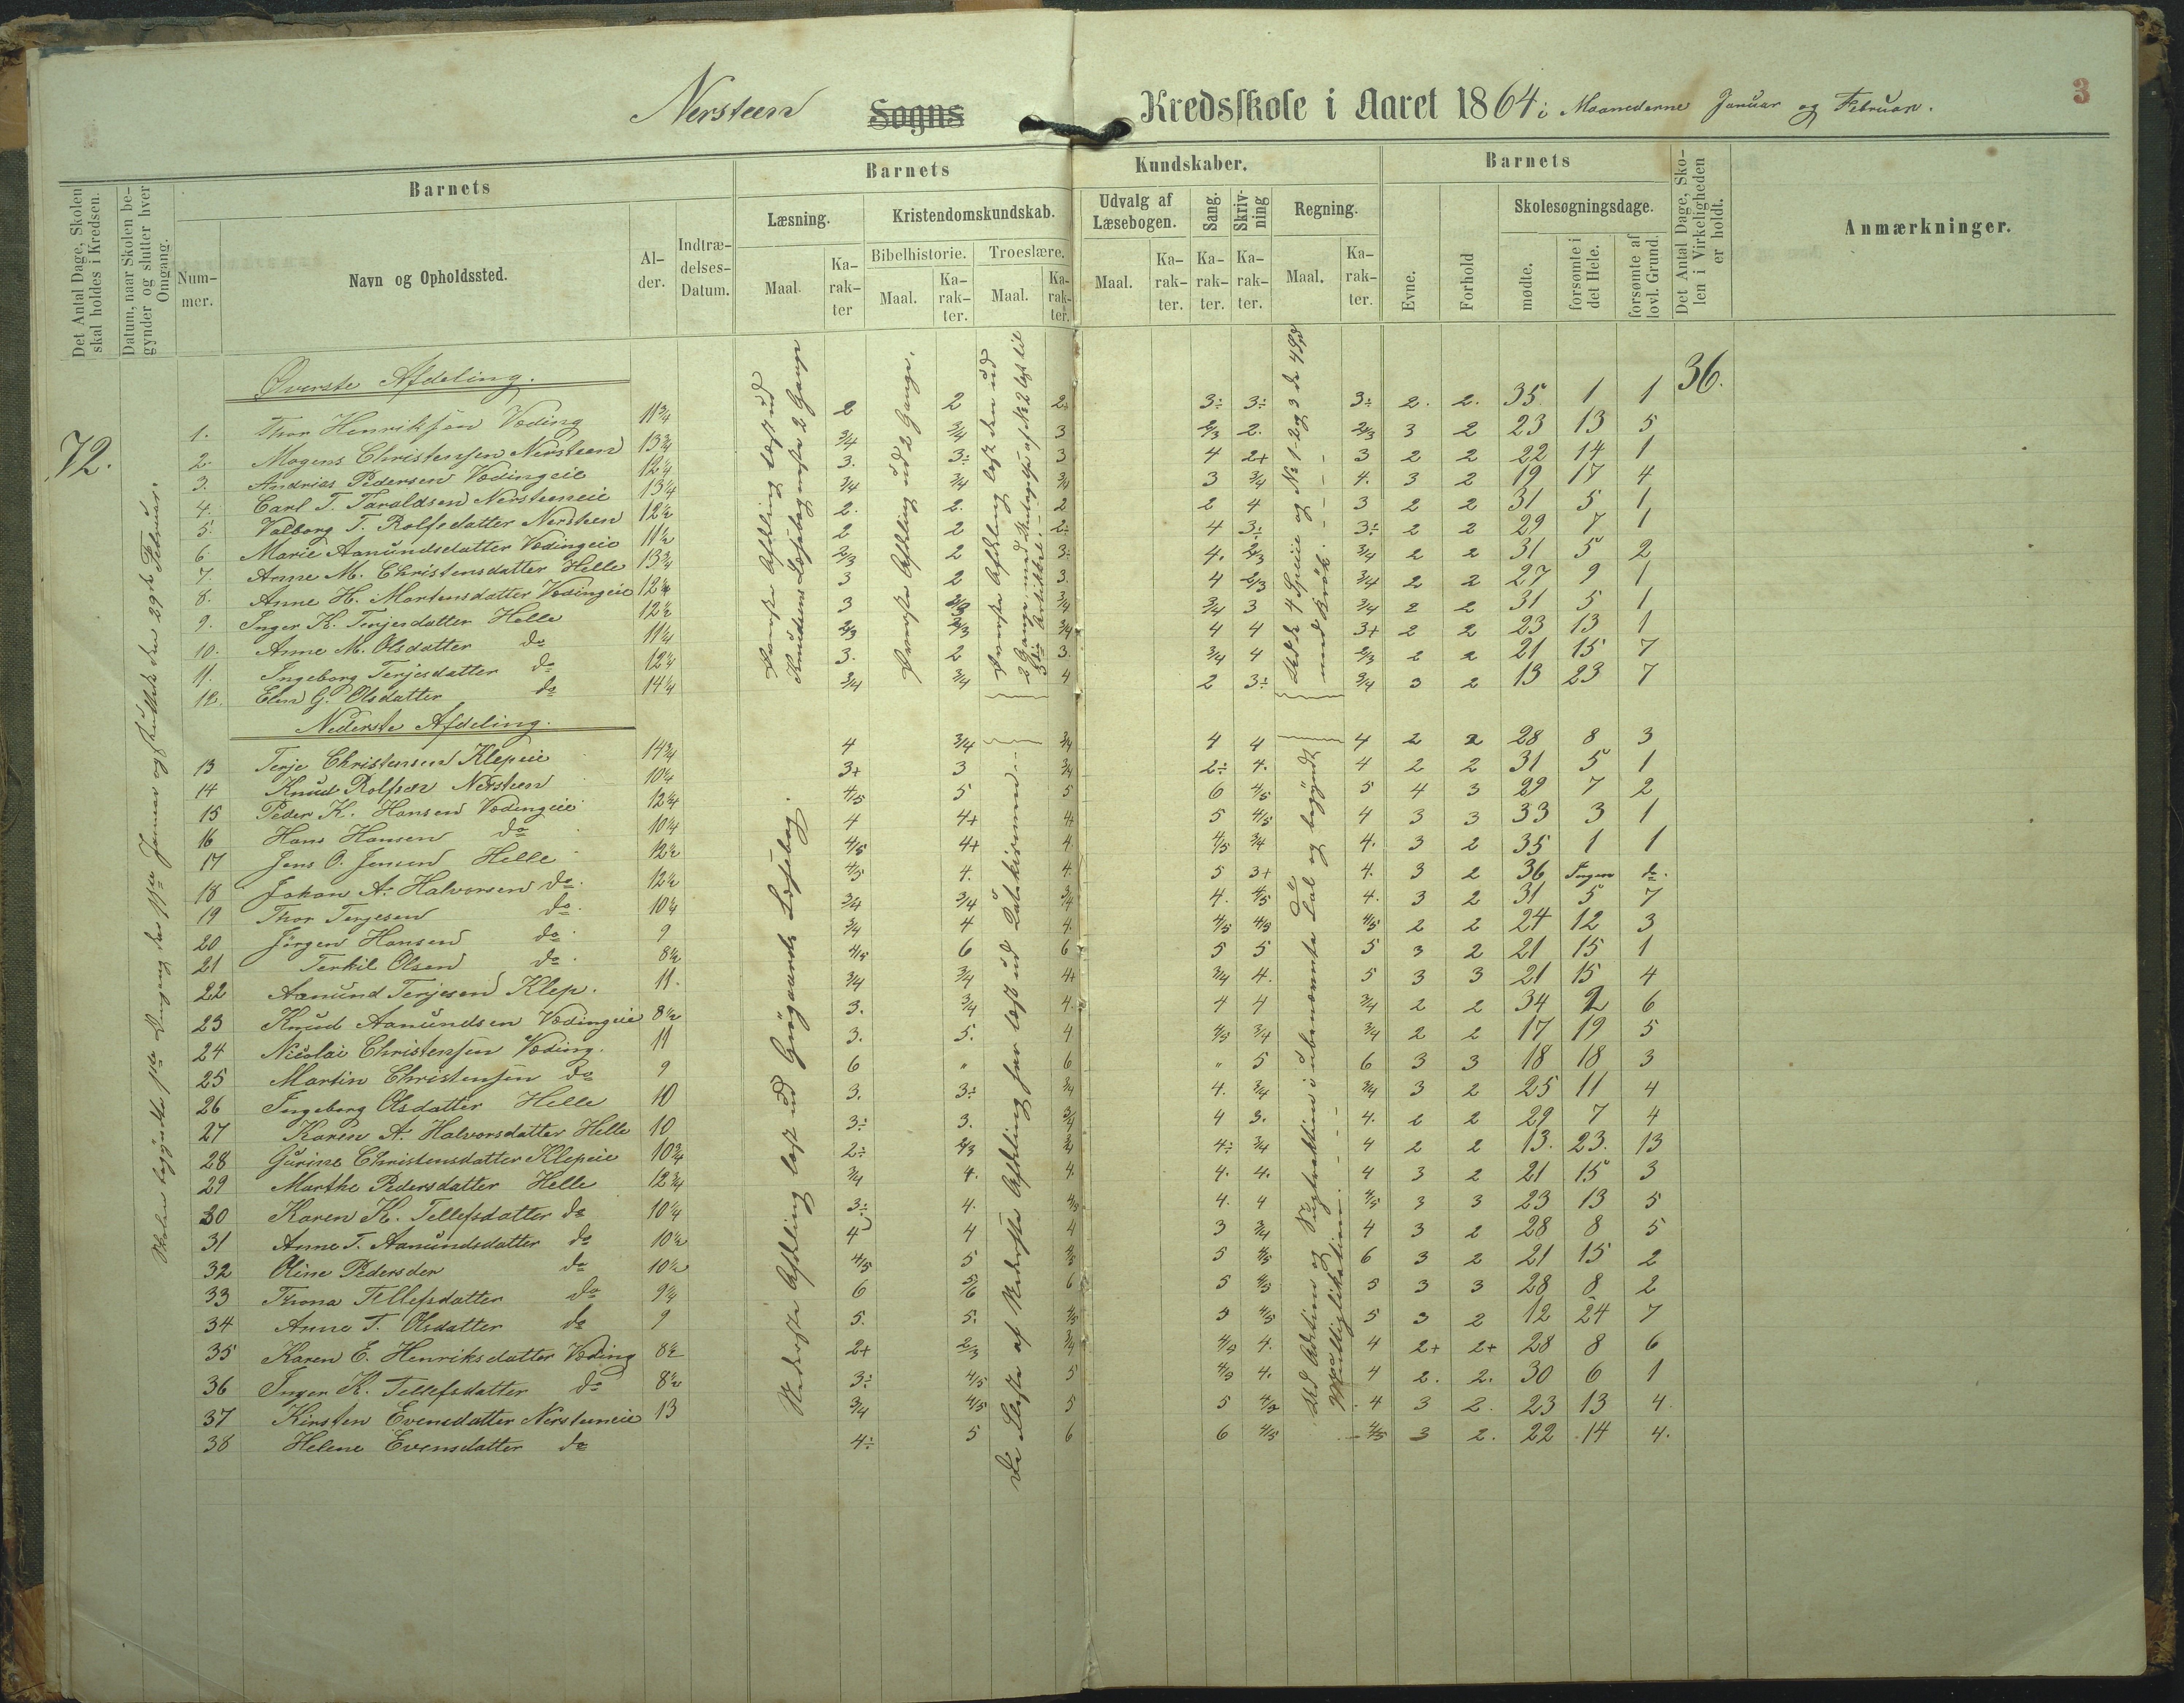 Nersteen Sogns Kredsskole i Aaret 1864 i Maanederne Januar og Februar.
3
Det Antal Dage, Skolen skal holdes i Kredsen.
Datum, naar Skolen begynder og slutter hver Omgang.
Barnets
Nummer.
Navn og Opholdssted.
Alder.
Indtrædelses-Datum.
Barnets Kundskaber.
Læsning.
Maal.
Karakter
Kristendomskundskab.
Bibelhistorie.
Maal.
Karakter.
Troeslære.
Maal.
Karakter.
Udvalg af Læsebogen.
Maal.
Karakter.
Sang.
Karakter.
Skrivning
Karakter.
Regning.
Maal.
Karakter.
Barnets
Evne.
Forhold
Skolesøgningsdage.
mødte.
forsømte i det Hele.
forsømte af lovl. Grund.
Det Antal Dage, Skolen i Virkeligheden er holdt.
Anmærkninger.
72.
36.
Øverste Afdeling.
1. Thor Henriksen Væding 11 3/4 2 2 2÷ 3÷ 3÷ 3÷ 2. 2. 35 1 1
2. Mogens Christensen Nersteen 13 3/4 3/4 3/4 3 2/3 2. 2/3 3 2 23 13 5
3. Andrias Pedersen Vædingeie 12 1/4 3. 3÷ 3 4 2+ 3 2 2 22 14 1
4. Carl T. Taraldsen Nersteeneie 13 1/4 3/4 3/4 3/4 3 3/4 4. 3 2 19 17 4
5. Valborg T. Rolfsdatter Nersteen 12 1/2 2. 2. 2 2 4 3 2 2 31 5 1
6. Marie Aanundsdatter Vædingeie 11 1/2 2 2 2÷ 4 3÷ 3÷ 2 2 29 7 1
7. Anne M. Christensdatter Helle 13 3/4 2/3 2 3÷ 4. 2/3 3/4 2 2 31 5 2
8. Anne H. Mortensdatter Vædingeie 12 1/4 3 2 3. 4 2/3 3/4 2 2 27 9 1
9. Inger K. Terjesdatter Helle 12 1/2 3 2/3 3/4 3/4 3 3/4 2 2 31 5 1
10. Anne M. Olsdatter do 11 1/4 2/3 2/3 3/4 4 4 3+ 2 2 23 13 1
11. Ingeborg Terjesdatter do 12 1/4 3. 2 3. 3/4 4 2/3 2 2 21 15 7
12. Elen G. Olsdatter do 14 1/4 3/4 3/4 4 2 3÷ 3/4 3 2 13 23 7
Nederste Afdeling.
13 Terje Christensen Klepeie 14 3/4 4 3/4 3/4 4 4 4 2 2 28 8 3
14 Knud Rolfsen Nersteen 10 1/4 3+ 3 3/4 2÷ 4. 4 2 2 31 5 1
15 Peder K. Hansen Vædingeie 12 3/4 4/5 5 5 6 4/5 5 4 3 29 7 2
16 Hans Hansen do 10 1/4 4 4+ 4+ 5 4/5 4 3 3 33 3 1
17 Jens O. Jensen Helle 12 1/2 4/5 4+ 4. 4/5 3/4 4. 3 2 35 1 1
18 Johan A. Halvorsen do 12 1/2 4/5 4. 4. 5 3+ 4. 3 2 36 Ingen do.
19 Thor Terjesen do 10 1/4 3/4 3/4 3/4 4. 4/5 4. 3 2 31 5 7
20 Jörgen Hansen do 9 3/4 4 4. 4/5 4/5 4/5 2 2 24 12 3
21 Terkil Olsen do 8 1/2 4/5 6 6 5 5 5 3 2 21 15 1
22 Aanund Terjesen Klep. 11. 3/4 3/4 4+ 3/4 4. 5 3 3 21 15 4
23 Knud Aanundsen Vædingeie 8 1/2 3. 3/4 4. 4 4 3/4 2 2 34 2 6
24 Nicolai Christensen Væding. 11 3. 5. 4 4/5 3/4 3/4 2 2 17 19 5
25 Martin Christensen do 9 6 " 6 " 5 6 3 3 18 18 3
26 Ingeborg Olsdatter Helle 10 3. 3÷ 3/4 4. 3/4 3/4 3 2 25 11 4
27 Karen A. Halvorsdatter Helle 10 3÷ 3. 3/4 4 3. 4. 2 2 29 7 4
28 Gurine Christensdatter Klepeie 10 3/4 2÷ 2/3 4÷ 3/4 4 2 2 13. 23. 13
29 Marthe Pedersdatter Helle 12 3/4 3/4 4. 4. 4. 4. 4 3 2 21 15 3
30 Karen K. Tellefsdatter do 10 1/4 3÷ 4. 4/5 4. 4 4/5 3 3 23 13 5
31 Anne T. Aanundsdatter do 10 1/2 4 4 4 3 3/4 4 3 2 28 8 5
32 Oline Pedersder do 10 1/2 4/5 5 4/5 5 4/5 6 3 2 21 15 2
33 Thona Tellefsdatter do 9 1/2 6 5/6 6 5 4/5 5 3 3 28 8 2
34 Anne T. Olsdatter do 9 5. 5. 4/5 5 4/5 5 3 2 12 24 7
35 Karen E. Henriksdatter Væding 8 1/2 2+ 2/3 3/4 4/5 4. 4 2+ 2+ 28 8 6
36 Inger K. Tellefsdatter do 8 1/2 3÷ 4/5 5 4/5 4. 4 2. 2. 30 6 1
37 Kirsten Evensdatter Nersteeneie 13 3/4 4/5 5 5 4/5 4 3 2. 23 13 4.
38 Helene Evensdatter do 4÷ 5 6 6 4/5 4/5 3 2. 22 14 4.
Skolen begyndte 1ste Omgang den 11te Januar og sluttede den 29de Februar.
Øverste Afdeling læst ud
Knudsens Læsebog næsten 2 Gange
Øverste Afdeling ud 2 Gange.
Øverste Afdeling læst den ud
2 Gange med
Artikkel
Ved de 4 Speciz og No 1-2 og 3 de 4 Sp
med Brök.
Nederste Afdeling læst ud Læsebog.
De fleste af Nederste Afdeling har læst ud Katekismen
Ved Addition og Sugtraktion i ubenævnte Tal og begyndt
Multiplikation.